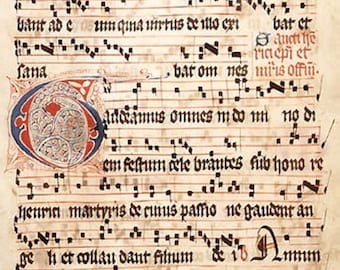 bant ad e um quia virtus de illo exi bat et
Sancti hen
rici epi et
mris offm.
sana bat om nes
Gaudeamus omnes in do mi no di
em festum cele brantes sub hono re
henrici martyris de cuius passio ne gaudent an
ge li et collau dant filium de i Annun